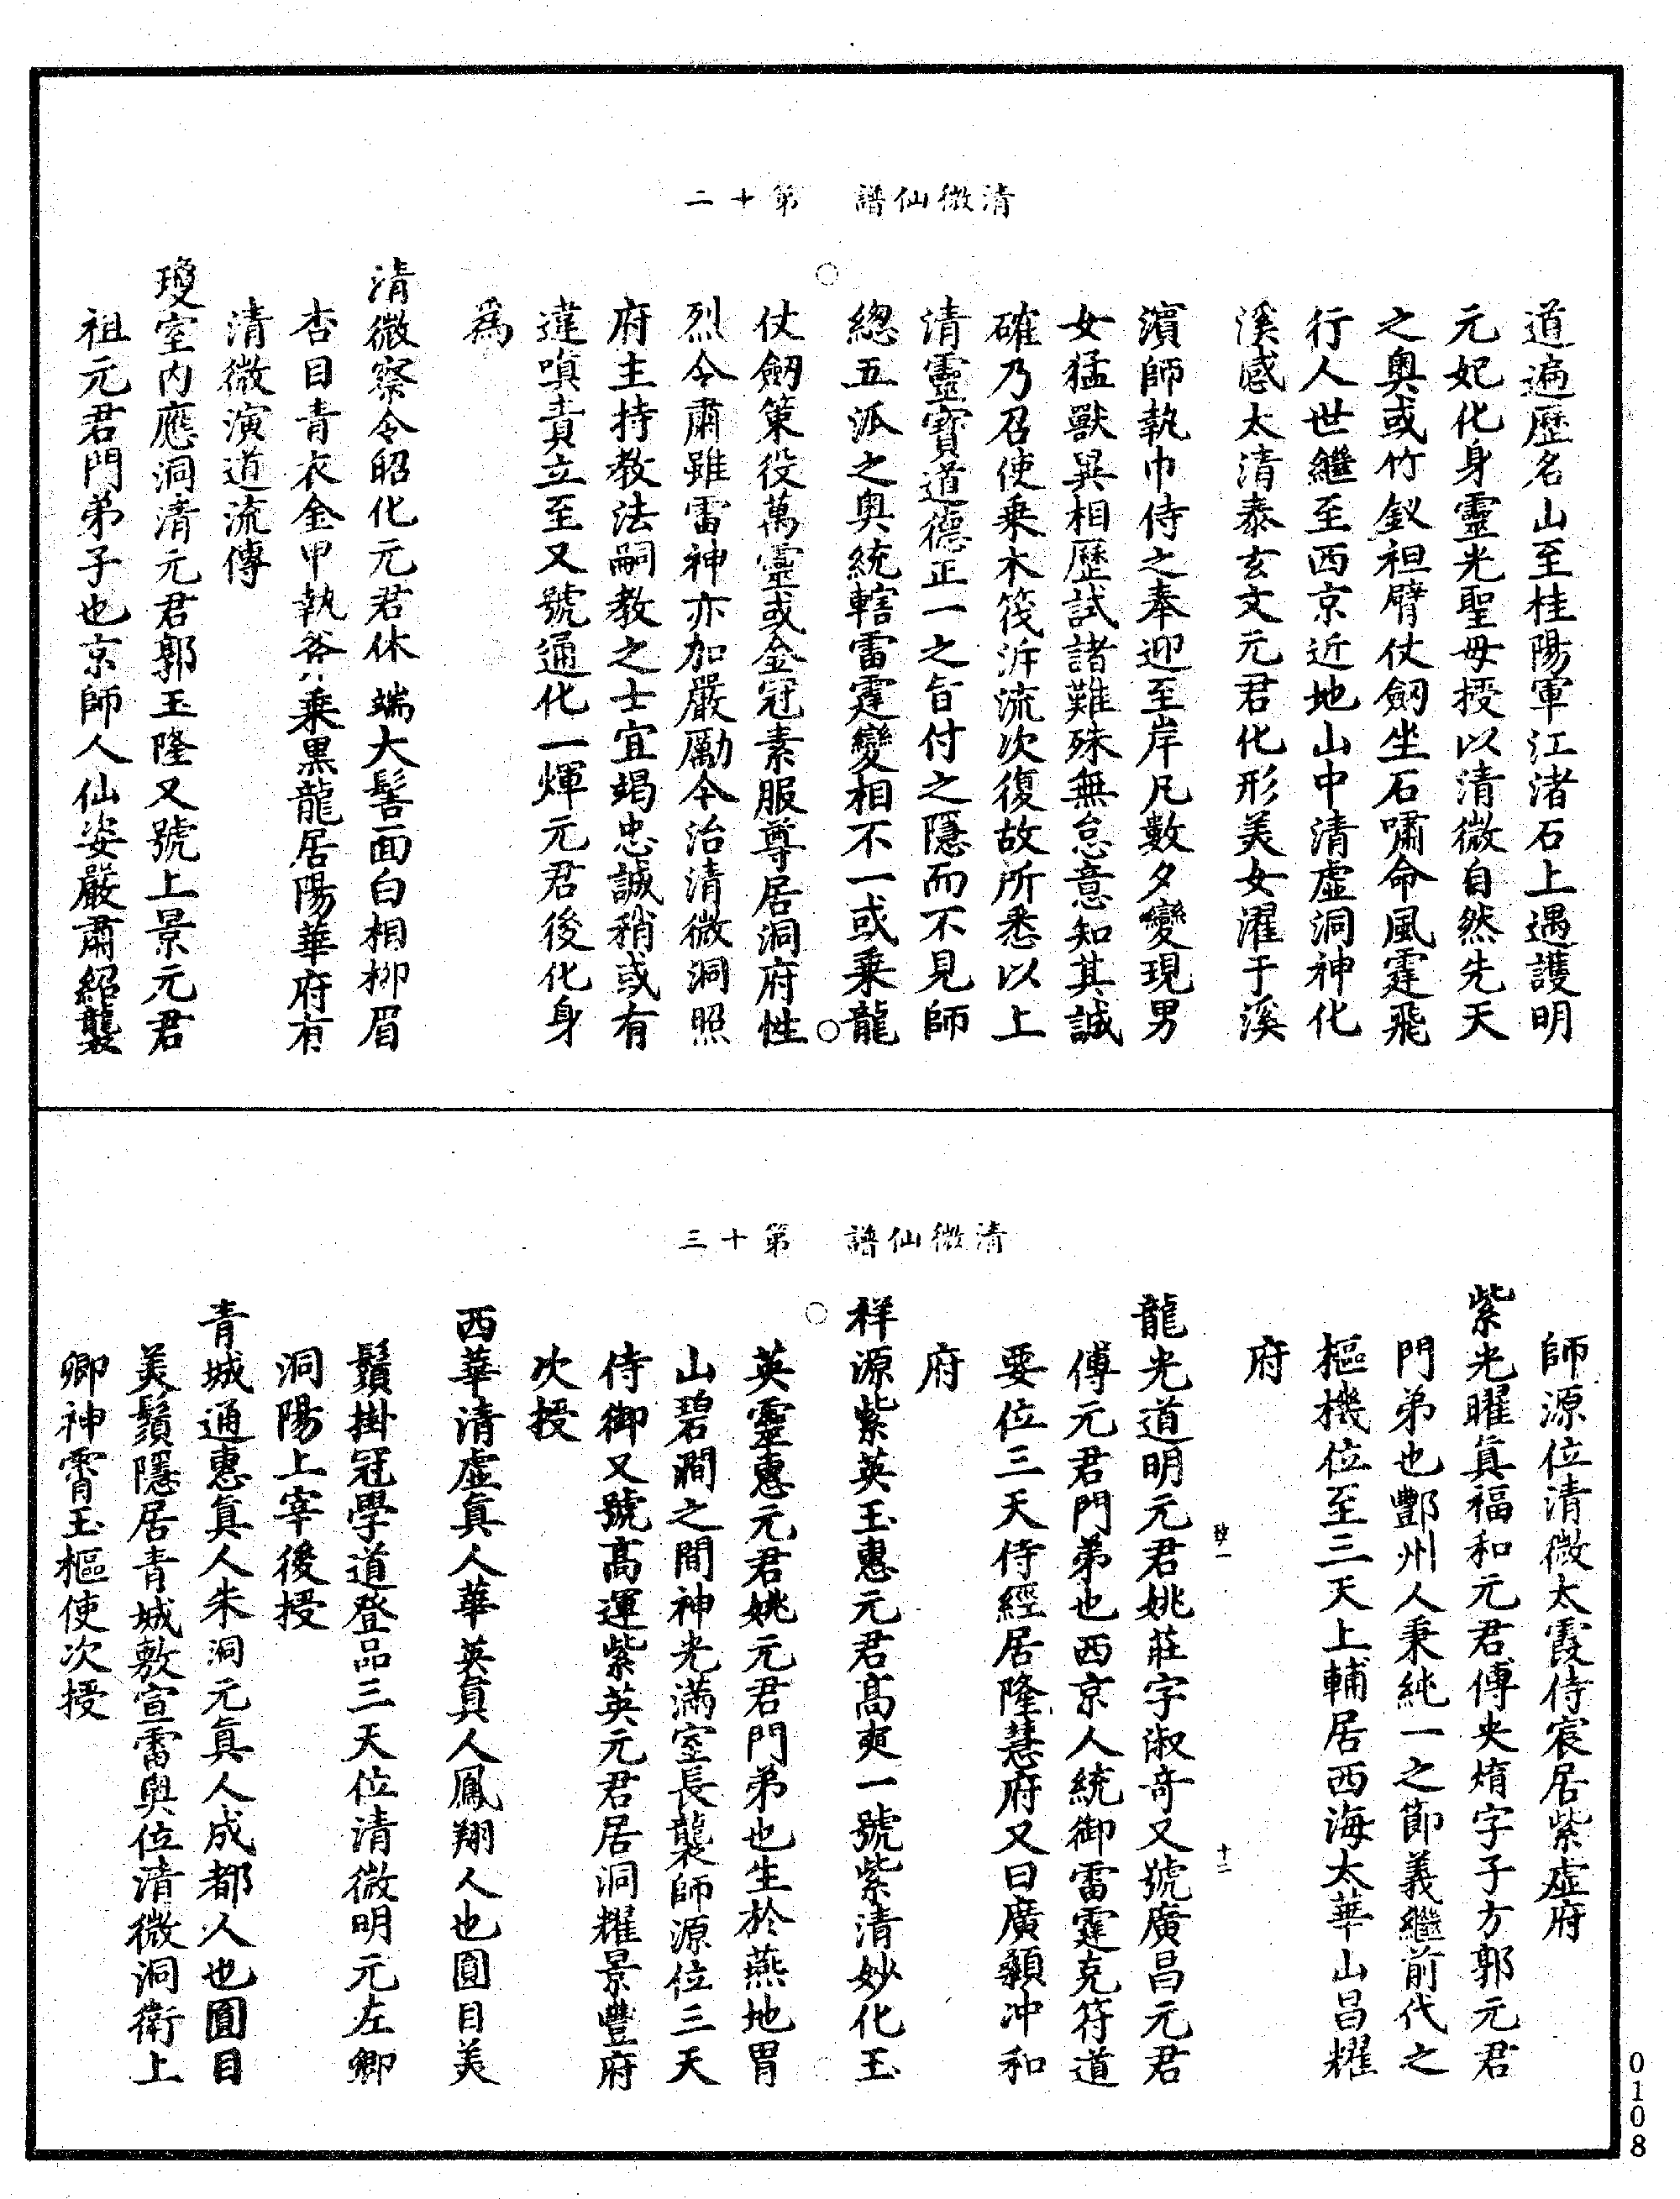 清微仙譜　第十二
道遍歷名山至桂陽軍江渚石上遇護明
元妃化身靈光聖母授以清微自然先天
之奧或竹釵袒臂仗劔坐石嘯命風霆飛
行人世繼至西京近地山中清虛洞神化
溪感太清泰玄文元君化形美女濯于溪
濱師執巾侍之奉迎至岸凡數夕變現男
女猛獸異相歷試諸難殊無怠意知其誠
確乃召使乗木筏泝流次復故所悉以上
清靈寳道德正一之旨付之隱而不見師
總五派之奧統轄雷霆變相不一或乗龍
仗劔策役萬靈或金冠素服尊居洞府性
烈令肅雖雷神亦加嚴勵今治清微洞照
府主持教法嗣教之士宜竭忠誠稍或有
違嗔責立至又號通化一煇元君後化身
爲
清微察令昭化元君休端大髻面白相柳眉
杏目青衣金甲執斧乗黒龍居陽華府有
清微演道流傳
瓊室内應洞清元君郭玉隆又號上景元君
祖元君門弟子也京師人仙姿嚴肅紹襲
清微仙譜　第十三
師源位清微太霞侍宸居紫虛府
紫光曜眞福和元君傅央焴字子方郭元君
門弟也酆州人秉純一之節義繼前代之
樞機位至三天上輔居西海太華山昌耀
府
致一　十二
龍光道明元君姚莊字淑竒又號廣昌元君
傅元君門弟也西京人統御雷霆克符道
要位三天侍經居隆慧府又曰廣顙冲和
府
祥源紫英玉惠元君髙奭一號紫清妙化玉
英靈惠元君姚元君門弟也生於燕地胃
山碧澗之間神光滿室長襲師源位三天
侍御又號髙運紫英元君居洞耀景豐府
次授
西華清虛眞人華英眞人鳳翔人也圓目美
鬚掛冠學道登品三天位清微明元左卿
洞陽上宰後授
青城通惠眞人朱洞元眞人成都人也圓目
美鬚隱居青城敷宣雷奥位清微洞衛上
卿神霄玉樞使次授
0108